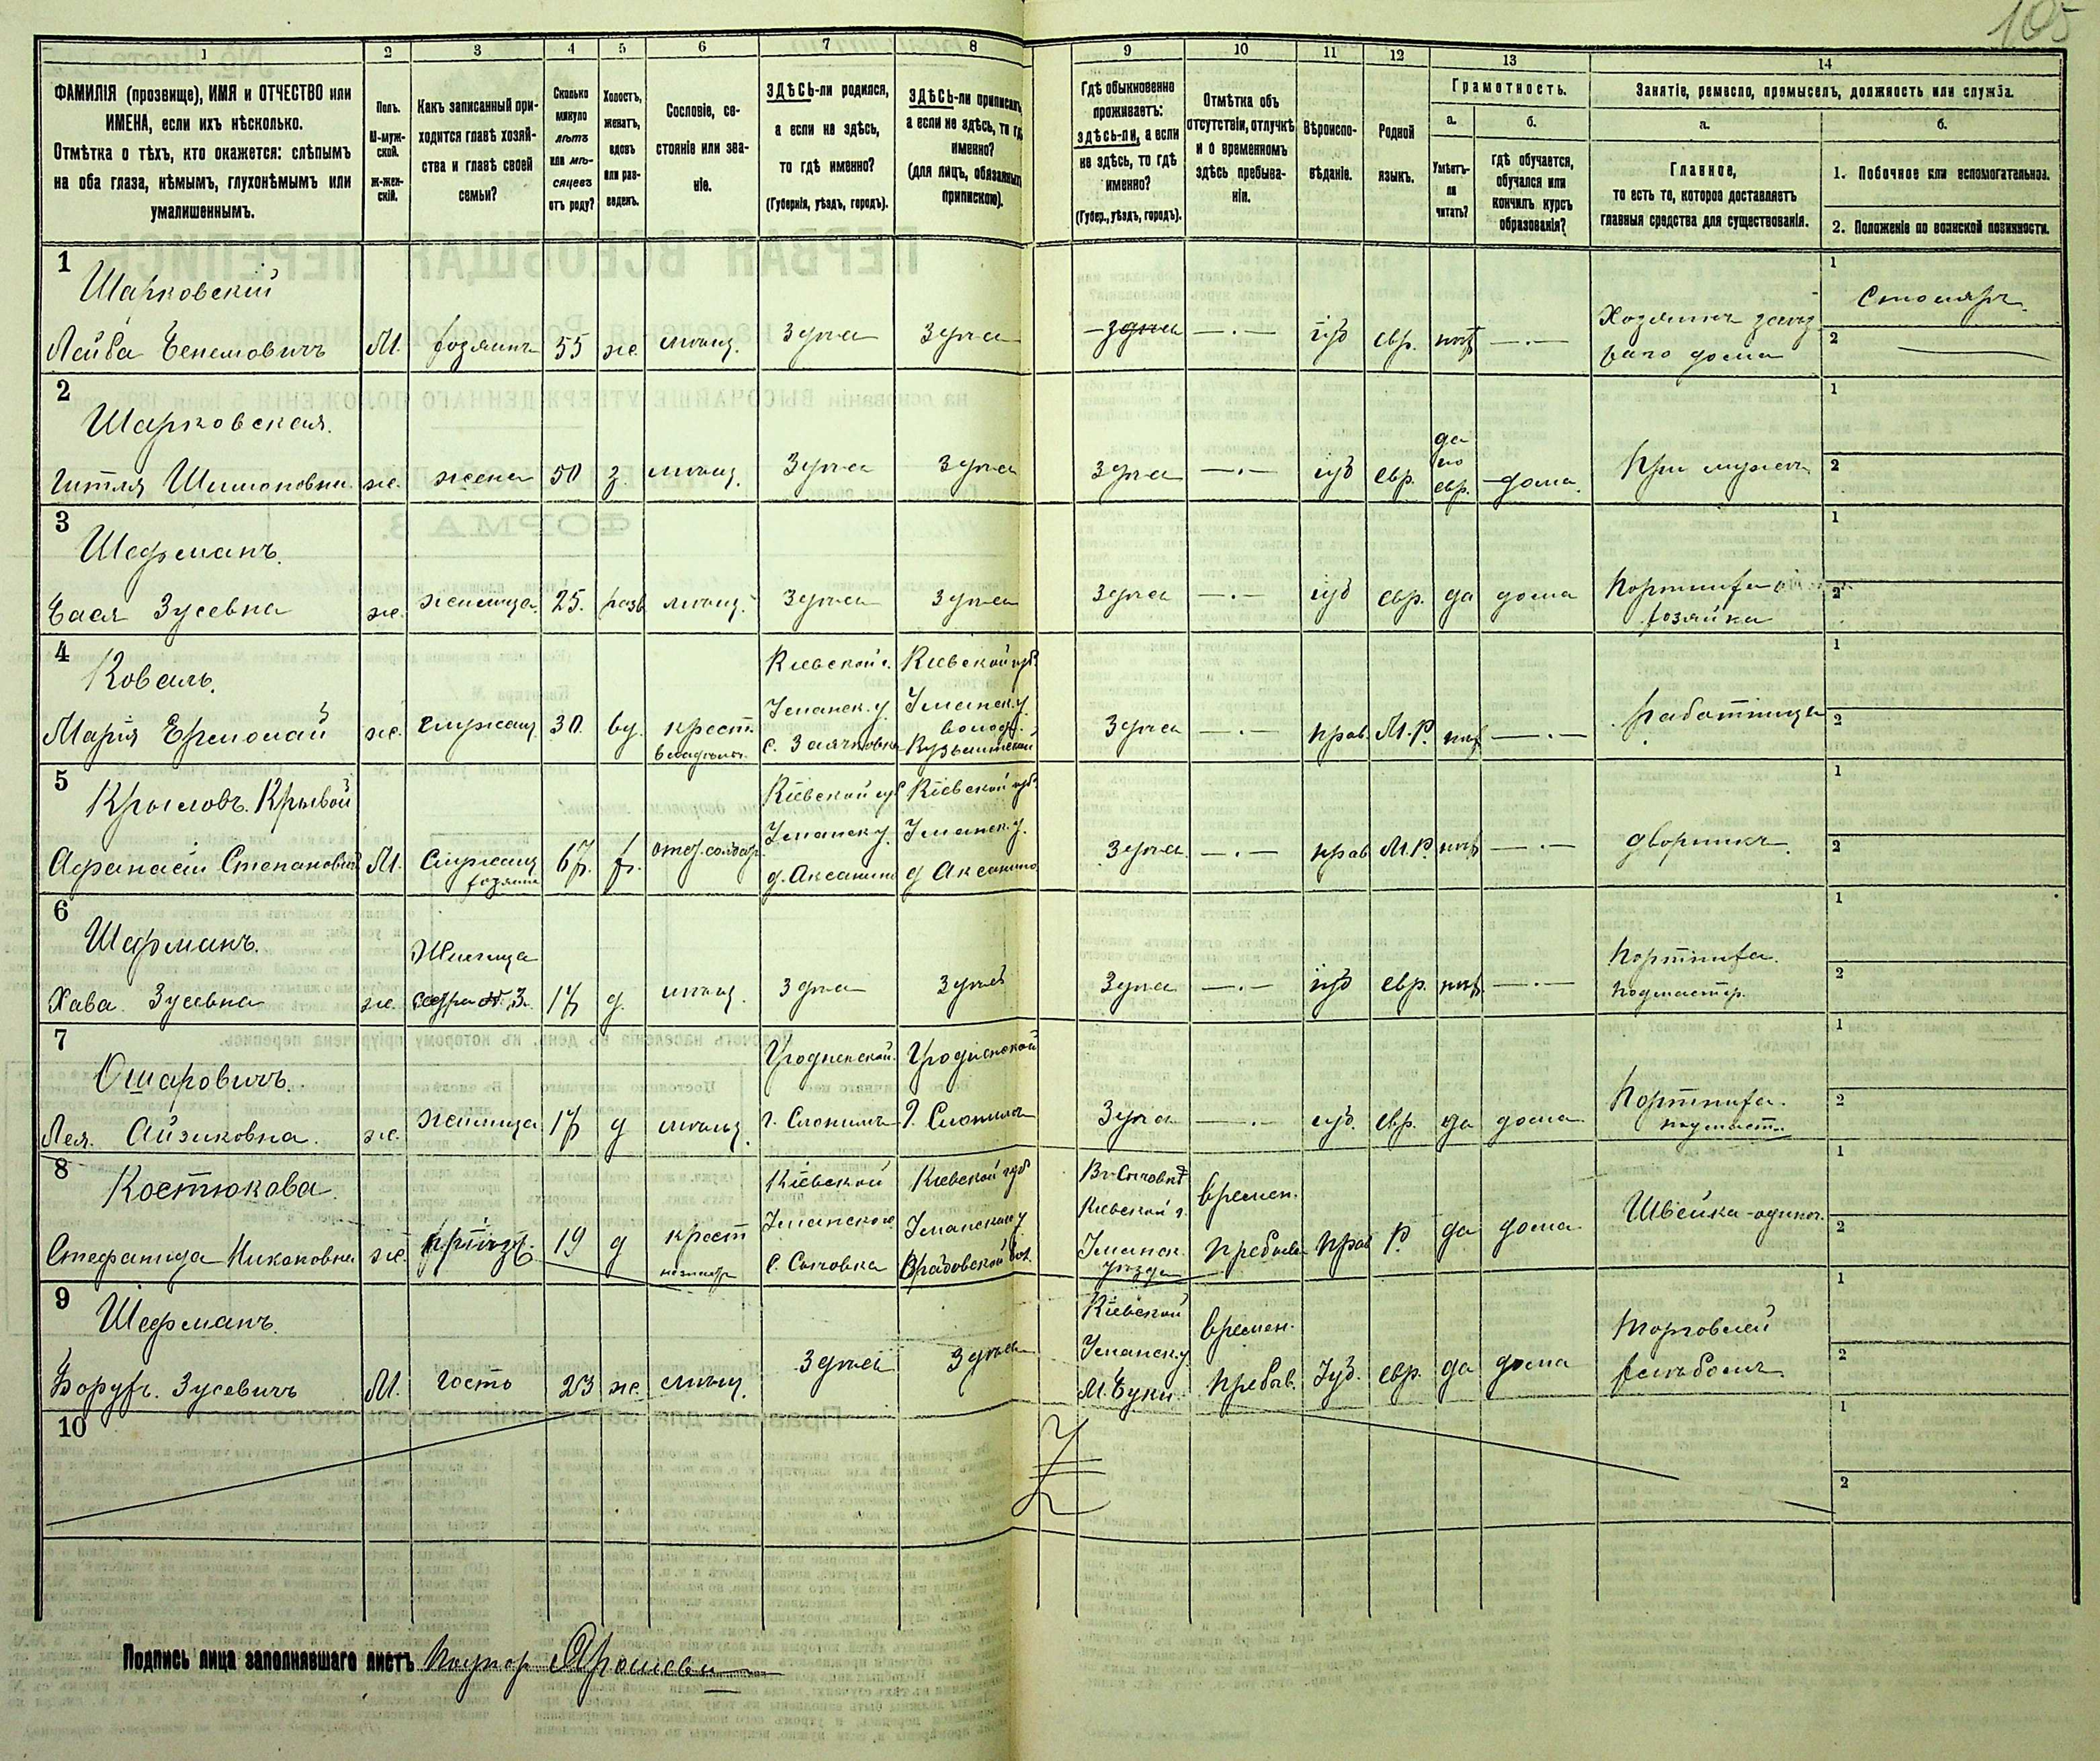 105
1 2 3 4 5 6 7 8 9 10 11 12 13 14
ФАМИЛІЯ (прозвище), ИМЯ и ОТЧЕСТВО или
ИМЕНА, если ихъ нѣсколько.
Отмѣтка о тѣхъ, кто окажется: слѣпымъ
на оба глаза, нѣмымъ, глухонѣмымъ или
умалишеннымъ.
Полъ.
М-муж-
ской.
Ж-жен-
скій.
Какъ записанный при-
ходится главѣ хозяй-
ства и главѣ своей
семьи?
Сколько
минуло
лѣтъ
или мѣ-
сяцевъ
отъ роду?
Холостъ,
женатъ,
вдовъ
или раз-
веденъ.
Сословіе, со-
стояніе или зва-
ніе.
ЗДѢСЬ-ли родился,
а если не здѣсь,
то гдѣ именно?
(Губернія, уѣздъ, городъ).
ЗДѢСЬ-ли приписанъ,
а если не здѣсь, то гдѣ
именно?
(для лицъ, обязанныхъ
припискою).
Гдѣ обыкновенно
проживаетъ:
здѣсь-ли, а если
не здѣсь, то гдѣ
именно?
(Губер., уѣздъ, городъ).
Отмѣтка объ
отсутствіи, отлучкѣ
и о временномъ
здѣсь пребыва-
ніи.
Вѣроиспо-
вѣданіе.
Родной
языкъ.
Грамотность.
а.
Умѣетъ-
ли
читать?
б.
гдѣ обучается,
обучался или
кончилъ курсъ
образованія?
Занятіе, ремесло, промыселъ, должность или служба.
а.
Главное,
то есть то, которое доставляетъ
главныя средства для существованія.
б.
1. Побочное или вспомогательное.
2. Положеніе по воинской повинности.
1
Шарковскій
Столяръ
Лейба М. хозяинъ 55 же. мѣщ. Здѣсь Здѣсь Здѣсь іуд евр. нѣтъ Хозяинъ
дома
2
Шарковская.
Гитля Шимоновна же. жена 50 з. мѣщ. Здѣсь Здѣсь Здѣсь іуд евр. да по евр. дома При мужѣ
3
Шефманъ.
Бася Зусевна же. жилица 25. разв мѣщ. Здѣсь Здѣсь Здѣсь іуд евр. да дома Портниха
хозяйка
4
Коваль.
Кіевской г. Кіевской губ.
Уманск. у. Уманск. у.
Марія же. служащ. 30. вд. крест. Здѣсь прав. М.Р. нѣтъ работница
5
Крыловъ. Кривой
Кіевской губ Кіевской губ.
Уманск у. Уманск. у.
Афанасій Степановичъ М. Служащ 67. х. отст. солдат Здѣсь прав М.Р. нѣтъ дворникъ
хозяина д. Аксанино д Аксанино
6
Шефманъ.
Жилица
Портниха.
Хава Зусевна же. 17 д. мѣщ. Здѣсь Здѣсь Здѣсь іуд евр. нѣтъ подмастер.
7
Ошаровичъ.
Гродненской. Гродненской
Лея. Айзиковна. же. жилица 17 д мѣщ. г. Слонимъ г. Слонимъ Здѣсь іуд. евр. да дома Портниха.
подмаст.
8
Костюкова
Кіевской Кіевской губ
Кіевской г. времен.
Уманского Уманскаго у Уманск. уѣзда
Стефанида Никоновна же. 19 д крест с. Сычовка пребыв прав Р. да дома Швейка-одиноч.
9
Шефманъ.
Кіевской времен.
Уманск у
Борухъ. Зусевичъ М. гость 23 же. мѣщ. Здѣсь Здѣсь М. Буки. пребыв. Іуд. евр. да дома Торговлей
хлѣбомъ
10
Подпись лица заполнявшаго листъ